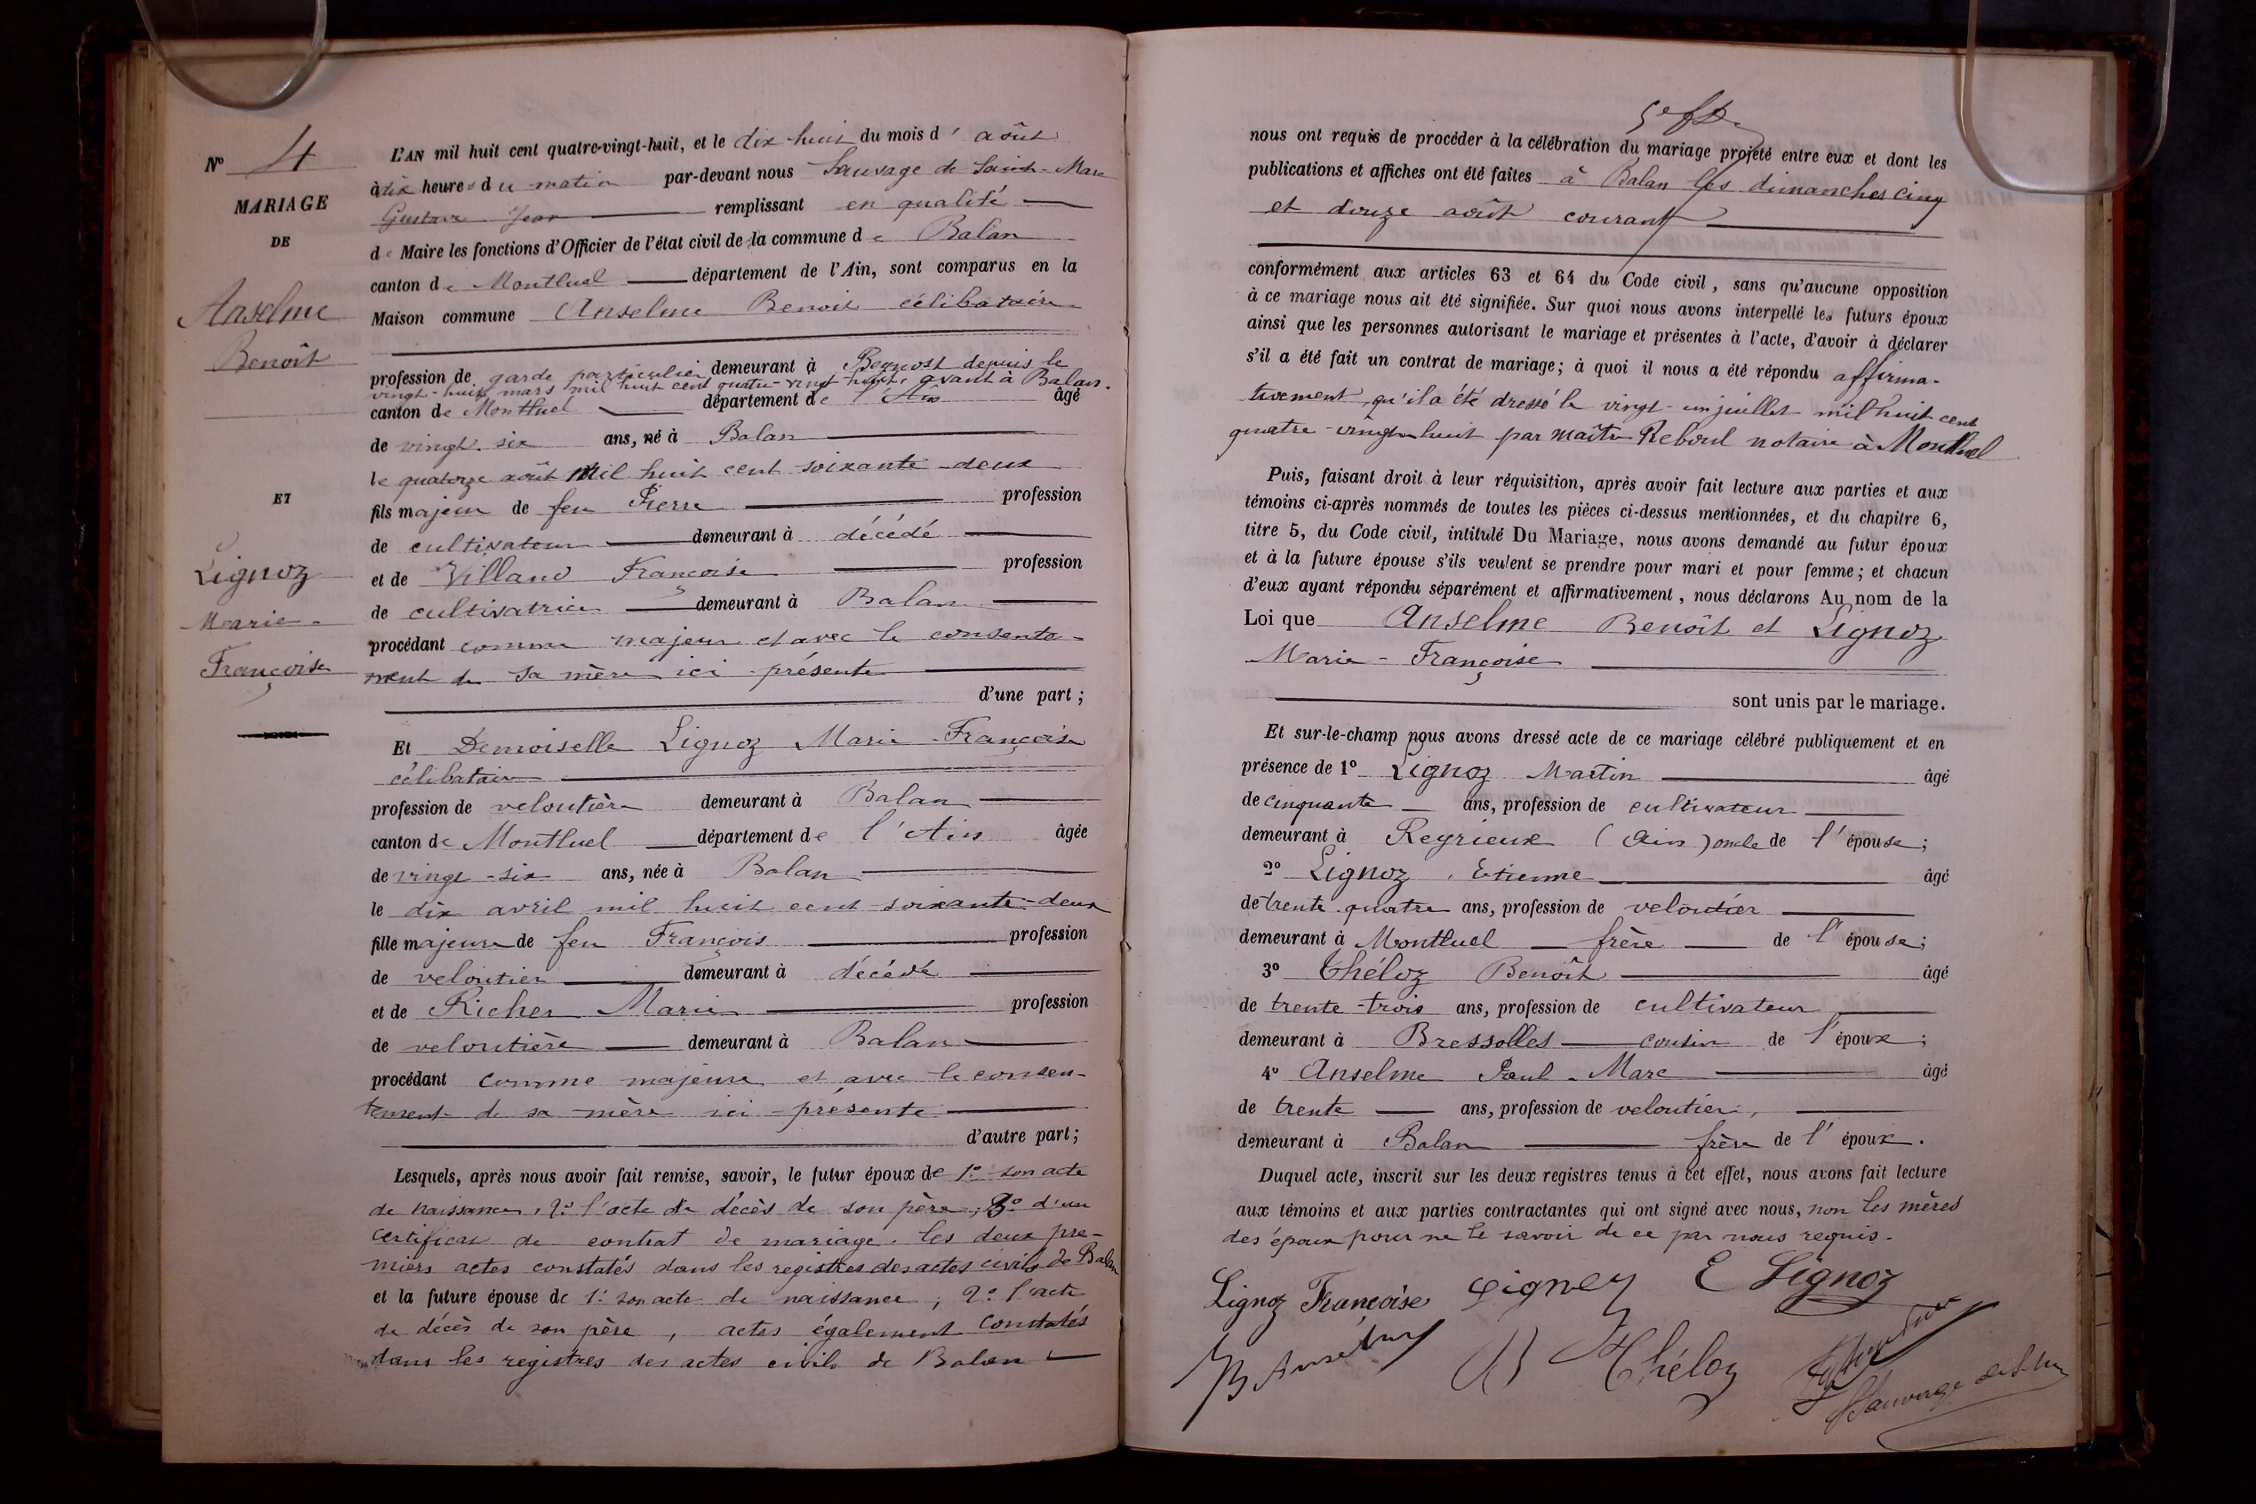 Nº 4
MARIAGE
DE
Anselme
Benoît
ET
Lignoz
Marie-
Françoise
L'AN mil huit cent quatre-vingt-huit, et le dix-huit du mois d'août
à dix heures du matin par-devant nous Sauvage de Saint-Marc
Gustave Jean remplissant en qualité
de Maire les fonctions d'Officier de l'état civil de la commune de Balan
canton de Montluel département de l'Ain, sont comparus en la
Maison commune Anselme Benoit célibataire
profession de garde particulier demeurant à Beynost depuis le
vingt-huit mars mil huit cent quatre-vingt-huit, avant à Balan.
canton de Montluel département de l'Ain âgé
de vingt-six ans, né à Balan
le quatorze août mil huit cent soixante-deux
fils majeur de feu Pierre profession
de cultivateur demeurant à décédé
et de Villand Françoise profession
de cultivatrice demeurant à Balan
procédant comme majeur et avec le consente-
ment de sa mère ici présente
d'une part ;
Et Demoiselle Lignoz Marie-Françoise
célibataire
profession de veloutière demeurant à Balan
canton de Montluel département de l'Ain âgée
de vingt-six ans, née à Balan
le dix avril mil huit cent soixante-deux
fille majeure de feu François profession
de veloutier demeurant à décédé
et de Richer Marie profession
de veloutière demeurant à Balan
procédant comme majeure et avec le consen-
tement de sa mère ici-présente
d'autre part ;
Lesquels, après nous avoir fait remise, savoir, le futur époux de 1º son acte
de naissance, 2º l'acte de décès de son père, 3º d'un
certificat de contrat de mariage. les deux pre-
miers actes constatés dans les registres des actes civils de Balan
et la future épouse de 1º son acte de naissance ; 2º l'acte
de décès de son père, actes également constatés
dans les registres des actes civils de Balan
nous ont requis de procéder à la célébration du mariage projeté entre eux et dont les
publications et affiches ont été faites à Balan les dimanches cinq
et douze août courant
conformément aux articles 63 et 64 du Code civil, sans qu'aucune opposition
à ce mariage nous ait été signifiée. Sur quoi nous avons interpellé les futurs époux
ainsi que les personnes autorisant le mariage et présentes à l'acte, d'avoir à déclarer
s'il a été fait un contrat de mariage ; à quoi il nous a été répondu affirma-
tivement, qu'il a été dressé le vingt-un juillet mil huit cent
quatre-vingt-huit par maître Reboul notaire à Montluel
Puis, faisant droit à leur réquisition, après avoir fait lecture aux parties et aux
témoins ci-après nommés de toutes les pièces ci-dessus mentionnées, et du chapitre 6,
titre 5, du Code civil, intitulé Du Mariage, nous avons demandé au futur époux
et à la future épouse s'ils veulent se prendre pour mari et pour femme ; et chacun
d'eux ayant répondu séparément et affirmativement, nous déclarons Au nom de la
Loi que Anselme Benoît et Lignoz
Marie-Françoise
sont unis par le mariage.
Et sur-le-champ nous avons dressé acte de ce mariage célébré publiquement et en
présence de 1º Lignoz Martin âgé
de cinquante ans, profession de cultivateur
demeurant à Reyrieux (Ain) oncle de l'épouse ;
2º Lignoz, Etienne âgé
de trente-quatre ans, profession de veloutier
demeurant à Montluel frère de l'épouse ;
3º Théloz Benoît âgé
de trente-trois ans, profession de cultivateur
demeurant à Bressolles cousin de l'époux ;
4º Anselme Paul-Marc âgé
de trente ans, profession de veloutier,
demeurant à Balan frère de l'époux.
Duquel acte, inscrit sur les deux registres tenus à cet effet, nous avons fait lecture
aux témoins et aux parties contractantes qui ont signé avec nous, non les mères
des époux pour ne le savoir de ce par nous requis.
Lignoz Françoise Lignoz E Lignoz
B Anselme Théloz
Sauvage de St Marc